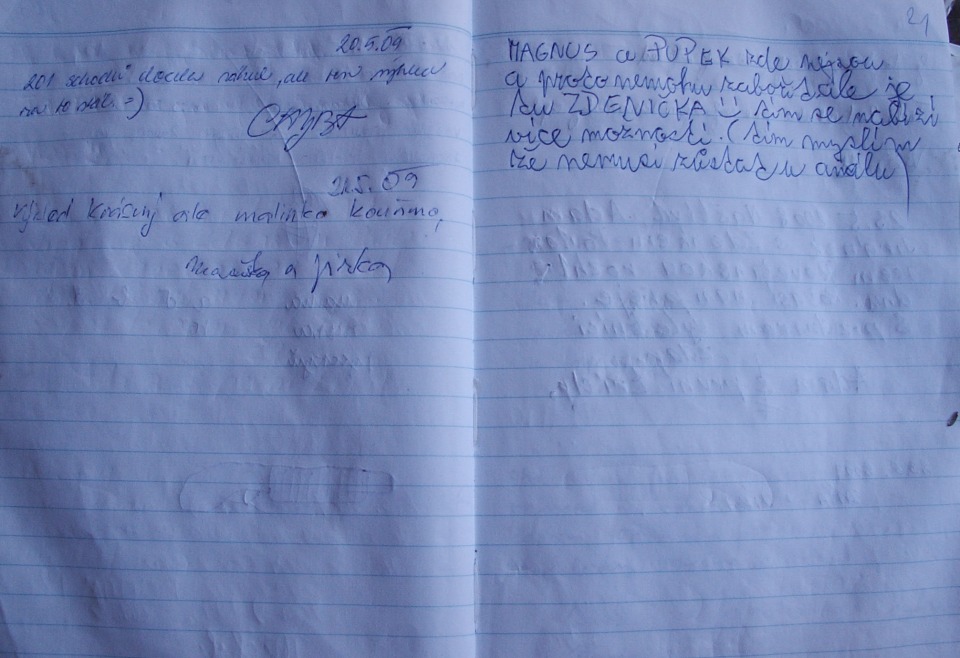 20.5.09
201 schodů docela náhul, ale ten výhled
mu to stál =)
21.5.09
Výhled krásný ale malinko kouřmo,
a Jirka
21
MAGNUS a PUPEK zde nejsou
a proto nemohu zabořit ale je
tu ZDENIČKA tím se nabízí
více možností. (tím myslím
že nemusí zůstat u análu)